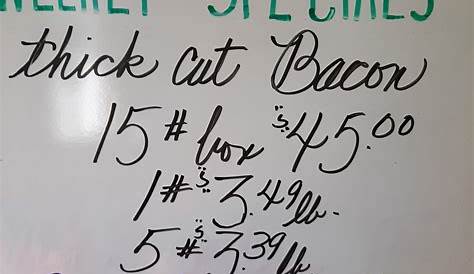 WEEKLY SPECIALS
thick cut Bacon
15# box $45.00
1# $3.49 lb.
5# $3.39 lb